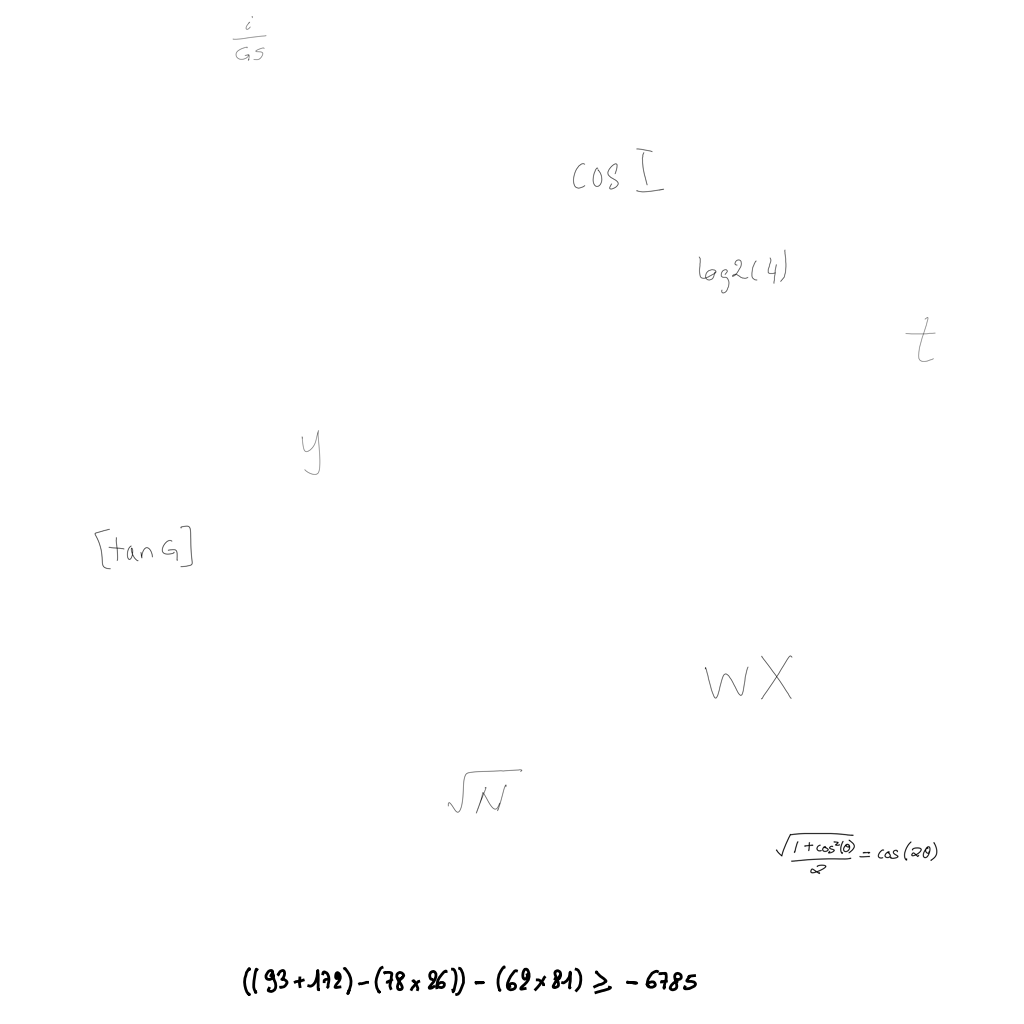 i/GS
cos I
log2(4)
t
y
[tan G]
W X
√N
√(1+cos²(θ))/2 = cos(2θ)
((93+172)-(78×26))-(62×81) ≥ -6785